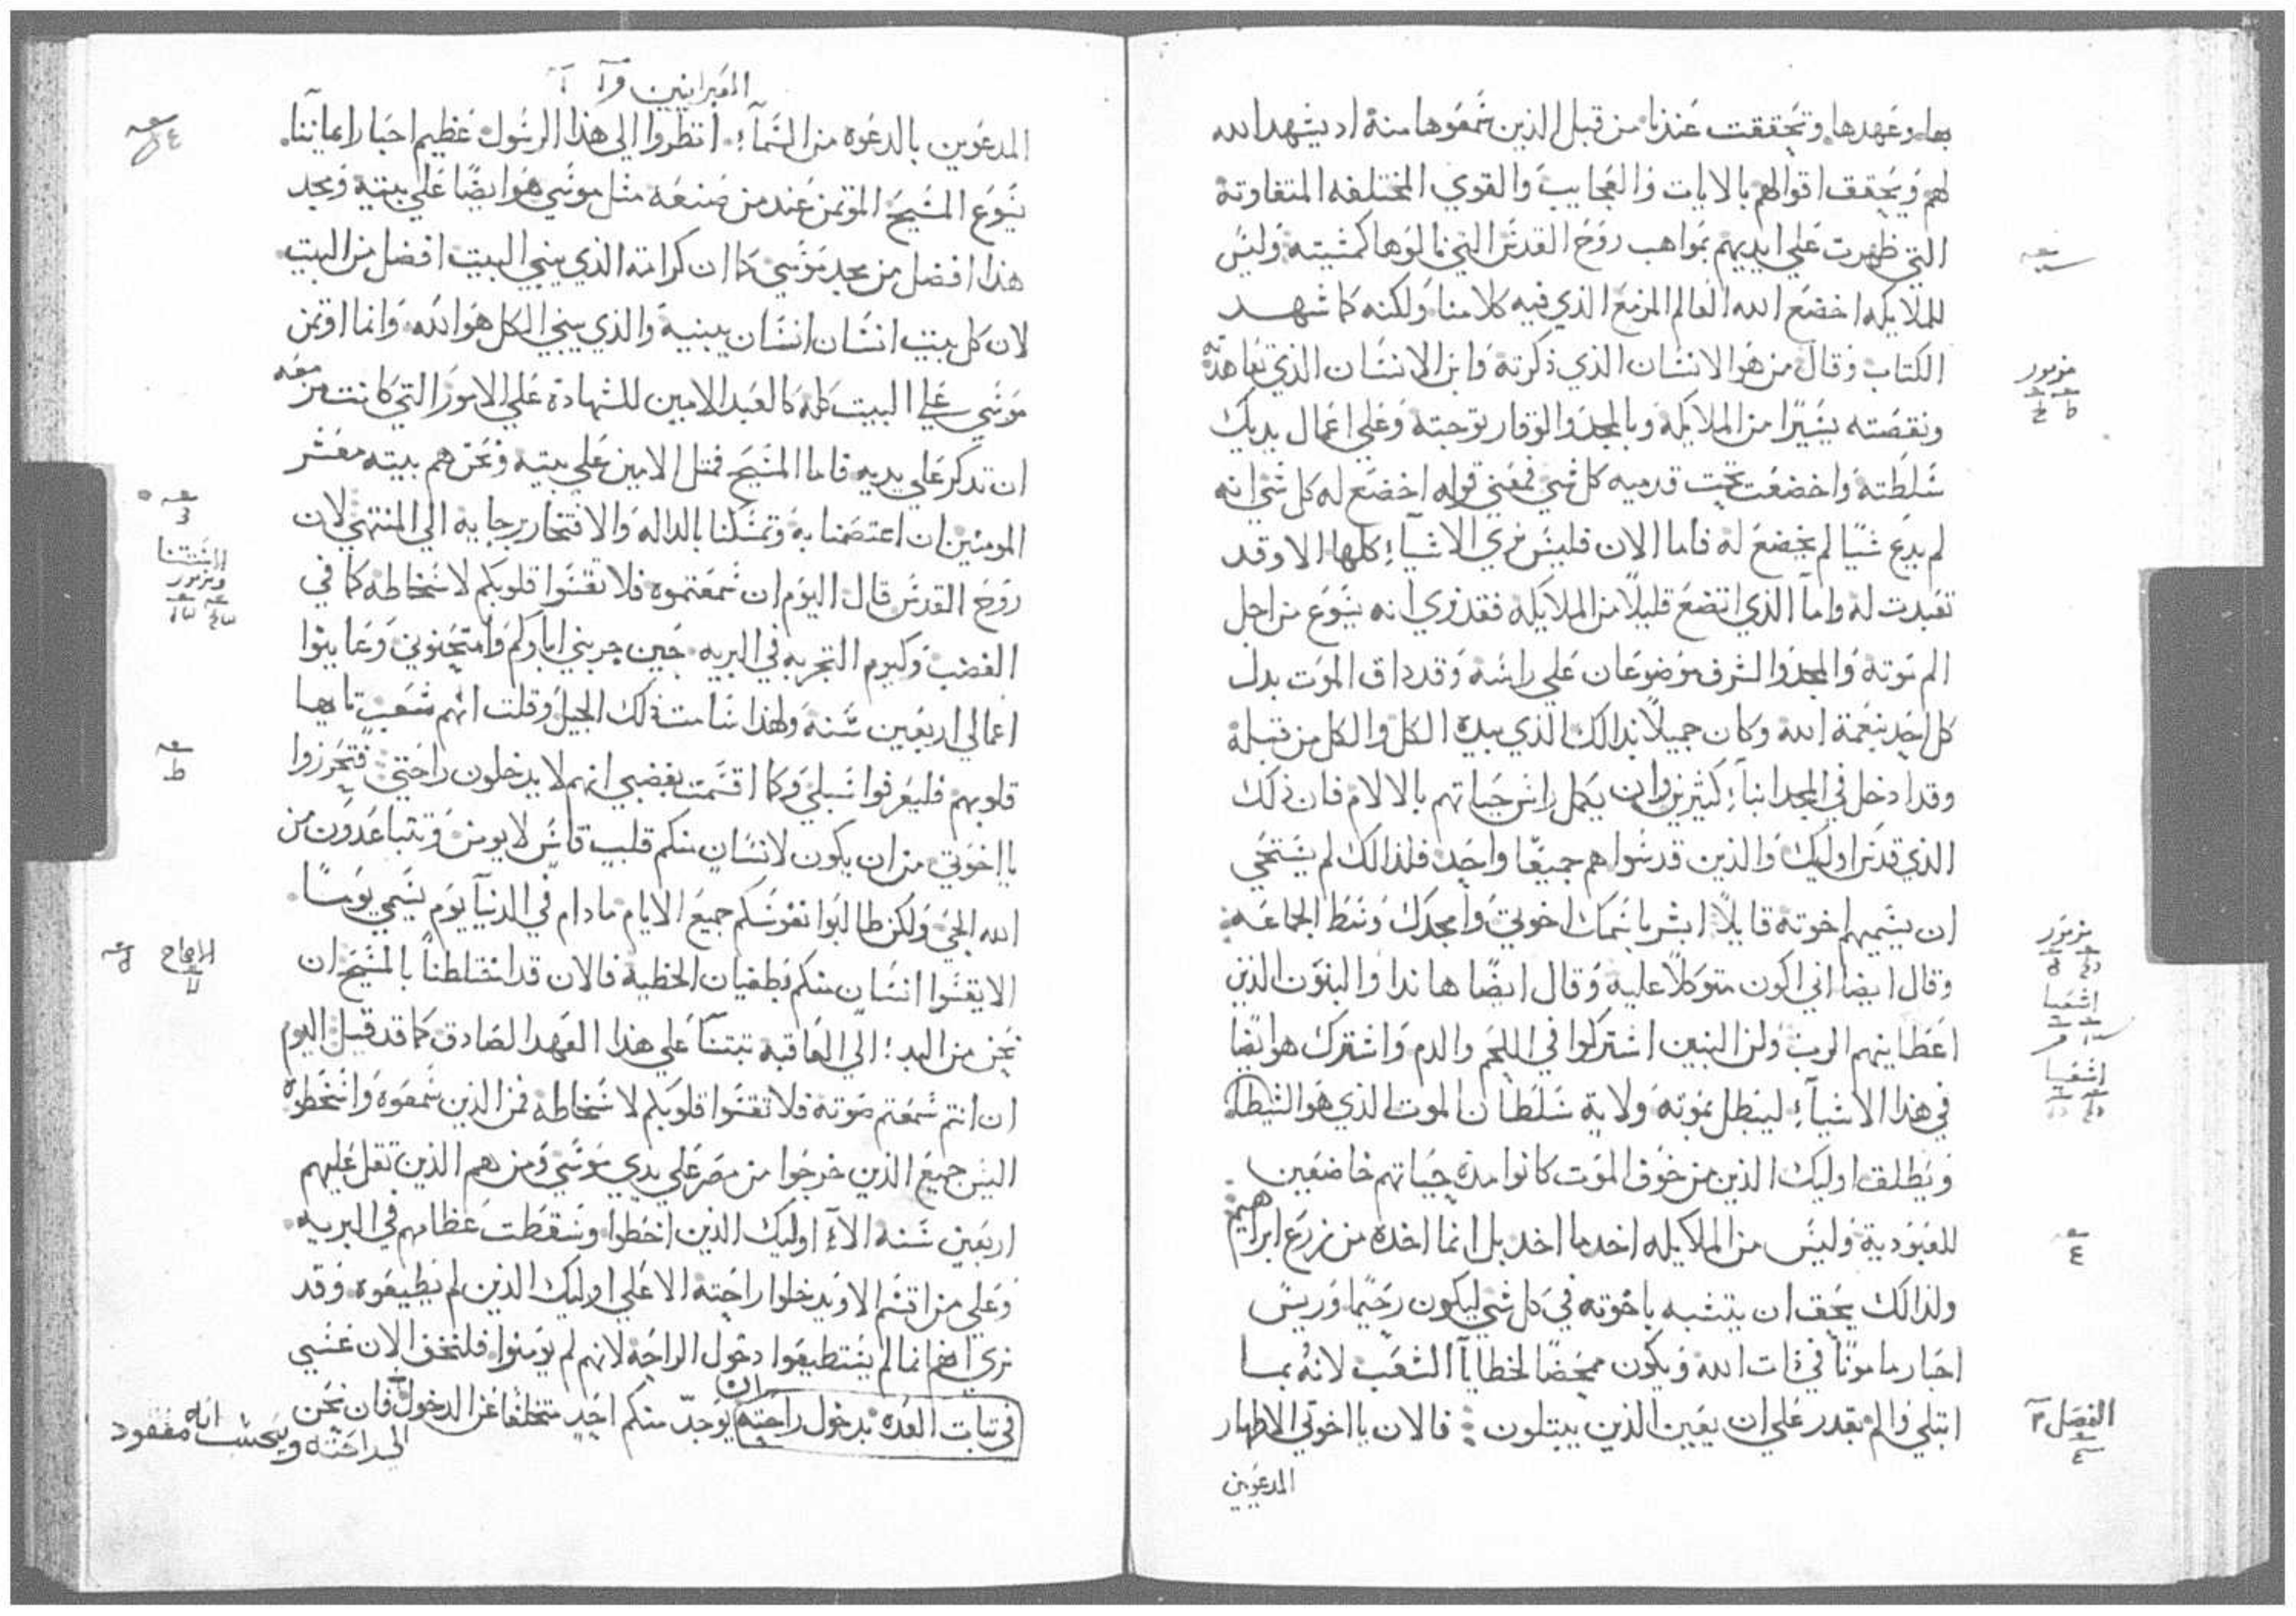 بها وعهدها وتحققت عندنا من قبل الذين سمعوها منه اد يشهد الله
لهم ويحقق اقوالهم بالايات والعجايب والقوي المختلفه المتفاوته
التي ظهرت علي ايديهم بمواهب روح القدس التي نالوها كمشيته وليس
للملايكه اخضع الله العالم المزمع الذي فيه كلامنا ولكنه كما شهد
الكتاب وقال من هو الانسان الذي ذكرته وابن الانسان الذي تعاهدته
مزمور
ونقصته يسيرا من الملايكه وبالمجد والوقار توجته وعلي اعمال يديك
سلطته واخضعت تحت قدميه كل شي فمعني قوله اخضع له كل شي انه
لم يدع شيا لم يخضع له فاما الان فليس نري الاشياء كلها الا وقد
تعبدت له واما الذي اتضع قليلا من الملايكه فقد نري انه يسوع من اجل
الم موته والمجد والشرف موضوعان علي راسه وقد داق الموت بدل
كل احد بنعمة الله وكان جميلا بذالك الذي بيده الكل والكل من قبله
وقد ادخل في المجد ابناء كثيرين وان يكمل راس حياتهم بالالام فان ذلك
الذي قدس اوليك والذين قدسوا هم جميعا واحد فلذالك لم يستحي
ان يسميهم اخوته قايلا ابشر باسمك اخوتي وامجدك وسط الجماعه
مزمور
وقال ايضا اني اكون متوكلا عليه وقال ايضا هاندا والبنون الذين
اشعيا
اعطانيهم الرب ولان البنين اشتركوا في اللحم والدم واشترك هو ايضا
اشعيا
في هذا الاشياء ليبطل بموته ولاية سلطان الموت الذي هو الشيطان
ويطلق اوليك الذين من خوف الموت كانوا مدة حياتهم خاضعين
للعبودية وليس من الملايكه اخد ما اخد بل انما اخده من زرع ابراهيم
ولذالك يحق ان يتشبه باخوته في كل شي ليكون رحيما وريس
احبار مامونا في ذات الله ويكون ممحصا لخطايا الشعب لانه بما
ابتلي والم يقدر علي ان يعين الذين يبتلون فالان يا اخوتي الاطهار
الفصل
المدعوين
العبرانيين
المدعوين بالدعوه من السماء انظروا الي هذا الرسول عظيم احبار ايماننا
يسوع المسيح الموتمن عند من صنعه مثل موسي هو ايضا علي بيته ومجد
هذا افضل من مجد موسي كما ان كرامة الذي يبني البيت افضل من البيت
لان كل بيت انسان انسان يبنيه والذي يبني الكل هو الله وانما اوتمن
موسي علي البيت كله كالعبد الامين للشهادة علي الامور التي كانت مزمعه
ان تدكر علي يديه فاما المسيح فمثل الامين علي بيته ونحن هم بيته معشر
المومنين ان اعتصمنا به وتمسكنا بالداله والافتخار برجايه الي المنتهي لان
ومزمور
روح القدس قال اليوم ان سمعتموه فلا تقسوا قلوبكم لاسخاطه كما في
الغضب وكيوم التجربه في البريه حين جربني اباوكم وامتحنوني وعاينوا
اعمالي اربعين سنه ولهذا سامت ذلك الجيل وقلت انهم شعب تايها
قلوبهم فليعرفوا سبلي وكما اقسمت بغضبي انهم لا يدخلون راحتي فتحرزوا
يا اخوتي من ان يكون لانسان منكم قلب قاس لا يومن وتتباعدون من
الله الحي ولكن طالبوا نفوسكم جميع الايام مادام في الدنيا يوم يسمي يوما
الا يقسوا انسان منكم بطغيان الخطيه فالان قد اختلطنا بالمسيح ان
الاصحاح
نحن من البدء الي العاقبه تبتنا علي هذا العهد الصادق كما قد قيل اليوم
ان انتم سمعتم صوته فلا تقسوا قلوبكم لاسخاطه فمن الذين سمعوه واسخطوه
اليس جميع الذين خرجوا من مصر علي يدي موسي ومن هم الذين تقل عليهم
اربعين سنه الا اوليك الذين اخطوا وسقطت عظامهم في البريه
وعلي من اقسم الا يدخلوا راحته الا علي اوليك الذين لم يطيعوه وقد
نري انهم انما لم يستطيعوا دخول الراحه لانهم لم يومنوا فلنخف الان عسي
في تبات العده بدخول راحته ان يوجد منكم احد متخلفا عن الدخول فان نحن
الي راحته ويحسب انه مفقود